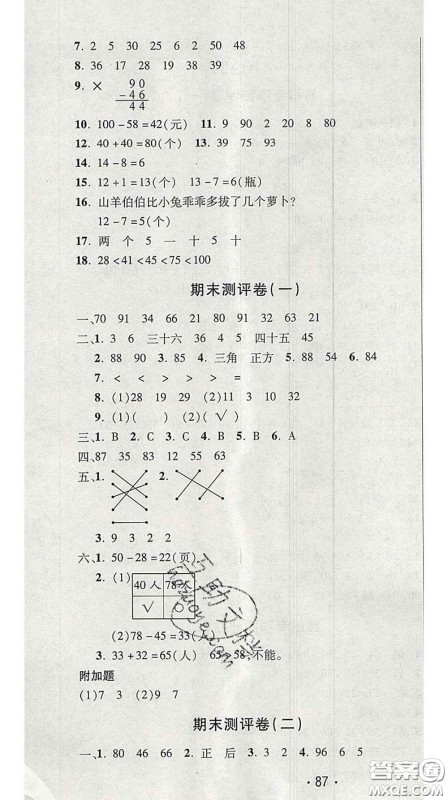 7. 2 5 30 25 20 50 48
8. 36 17 28 19 38 39
9. ×
90
-46
44
10. 100-58=42(元) 11. 9 90 2 20 8 80
12. 40+40=80(个) 13. 39 75 93
14. 14-8=6
15. 12+1=13(个) 13-7=6(瓶)
16. 山羊伯伯比小兔乖乖多拔了几个萝卜?
12-7=5(个)
17. 两 个 5 一 十 5 十
18. 28<41<45<75<100
期末测评卷(一)
一、70 91 34 66 21 80 91 32 63 21
二、1. 3 6 三十六 36 4 5 四十五 45
2. 88 90 3. 85 4. 三角 正方 5. 58 6. 84
7. < < > > > =
8. (1)28 17 29 (2)11 3 10 32
9. (1)( ) (2)(√)
三、1. B 2. C 3. A 4. C 5. B 6. A
四、87 35 83 12 55 63
五、1. 2.
3. 9 3 2 2
六、1. 50-28=22(页)
2. (1)
40人 78个
√ ○
(2)78-45=33(
3. 33+32=65(人) 65>58,不能。
附加题
(1)7 3 (2)9 7
期末测评卷(二)
一、1. 80 46 66 2. 正 后 3. 3 2 4. 96 6 5
· 87 ·
答案圈
MXQE.COM